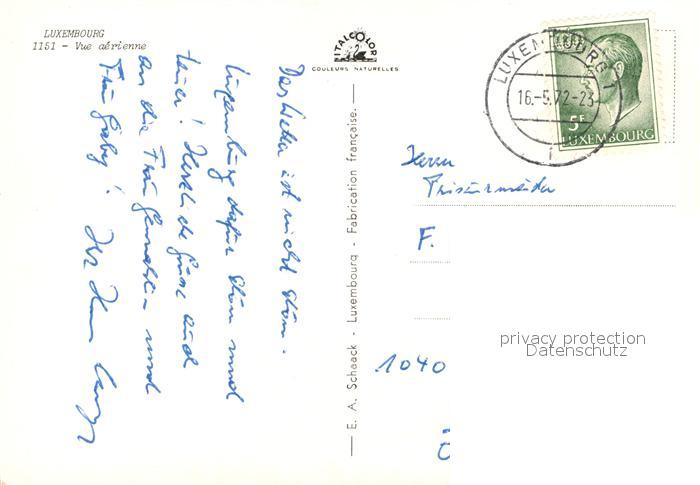 LUXEMBOURG
1151 - Vue aérienne
ITALCOLOR
COULEURS NATURELLES
LUXEMBOURG 1
16.-5.72-23
5F
LUXEMBOURG
Das Wetter ist nicht schön.
Luxemburg dafür schön und
teuer! Herzliche Grüße auch
an die Frau Gemahlin und
Frau
Ihr
E. A. Schaack - Luxembourg - Fabrication française.
Herrn
Friseurmeister
F.
1040
privacy protection
Datenschutz